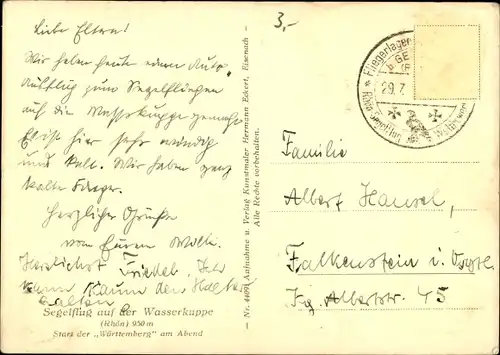 3,-
Liebe Eltern!
Wir haben heute einen Auto
Ausflug zum Segelfliegen
auf die Wasserkuppe gemacht.
Es ist hier sehr windig
und kalt. Wir haben ganz
kalte
Herzliche Grüsse
von Euren
Herzlichst Friedel. Ich
kann kaum den Halter
halten
Segelflug auf der Wasserkuppe
(Rhön) 950 m
Start der „Württemberg" am Abend
Nr. 4409 Aufnahme u. Verlag Kunstmaler Hermann Eckert, Eisenach –
Alle Rechte vorbehalten.
Fliegerlager
b. GE
(R
29.7.
* Rhön Segelflug
Familie
Albert Hansel,
Falkenstein i. Vogtl.
Kg. Albertstr. 45